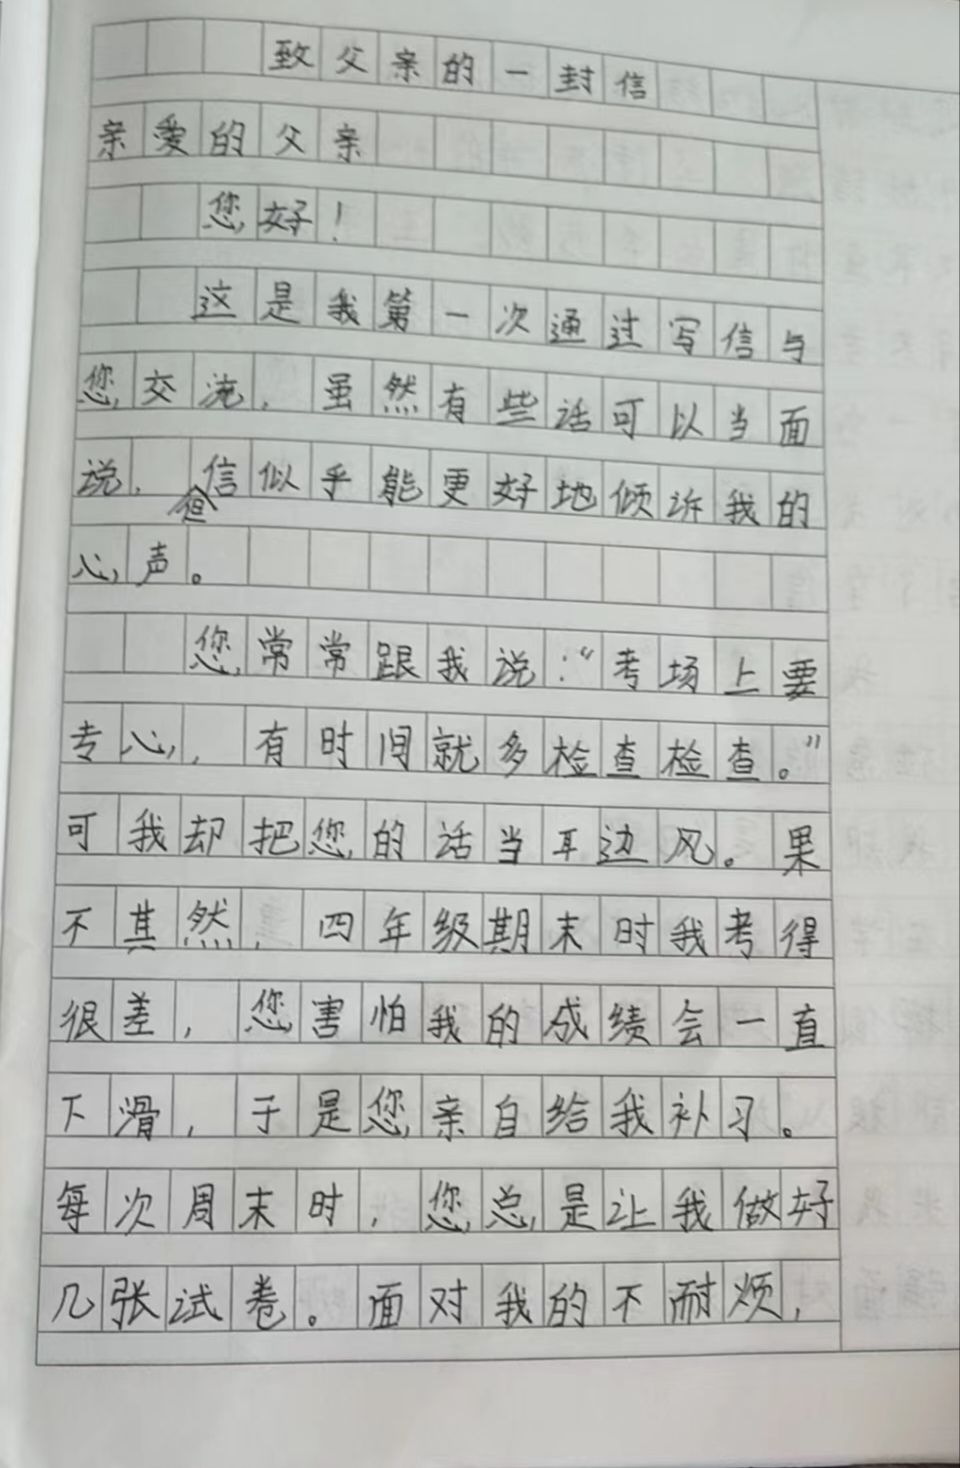 致父亲的一封信
亲爱的父亲
您好！
这是我第一次通过写信与
您交流，虽然有些话可以当面
说，但信似乎能更好地倾诉我的
心声。
您常常跟我说：“考场上要
专心，有时间就多检查检查。”
可我却把您的话当耳边风。果
不其然，四年级期末时我考得
很差，您害怕我的成绩会一直
下滑，于是您亲自给我补习。
每次周末时，您总是让我做好
几张试卷。面对我的不耐烦，